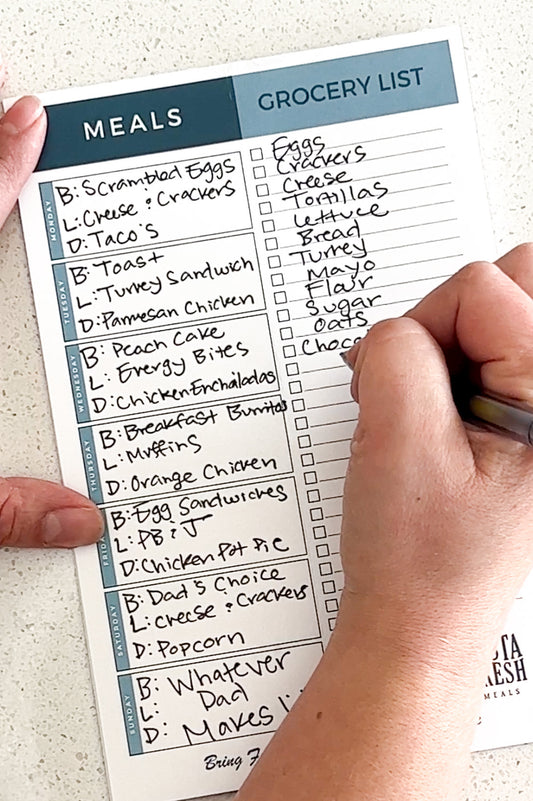 MEALS
MONDAY
B: Scrambled Eggs
L: Cheese & Crackers
D: Taco's
TUESDAY
B: Toast
L: Turkey Sandwich
D: Parmesan Chicken
WEDNESDAY
B: Peach Cake
L: Energy Bites
D: Chicken Enchaladas
THURSDAY
B: Breakfast Burritos
L: Muffins
D: Orange Chicken
FRIDA
B: Egg Sandwiches
L: PB & J
D: Chicken Pot Pie
SATURDAY
B: Dad's Choice
L: cheese & Crackers
D: Popcorn
SUNDAY
B: Whatever
L: Dad
D: Makes
Bring
GROCERY LIST
Eggs
Crackers
Cheese
Tortillas
Lettuce
Bread
Turkey
Mayo
Flour
Sugar
Oats
Choc
MEALS